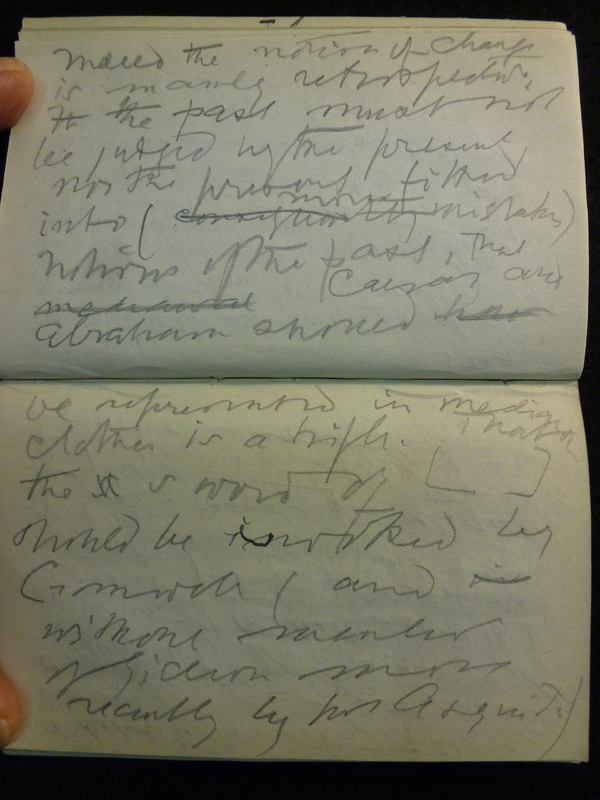 indeed the notion of change
is mainly retrospective.
If the past must not
be judged by the present,
nor the present fitted
into ( more mistaken)
notions of the past, that
mediaeval Caesar and
Abraham should have
be represented in mediaeval
clothes is a trifle. That
the sword of [ ]
should be invoked by
Cromwell (and in
without
of Gideon more
recently by Asquith)